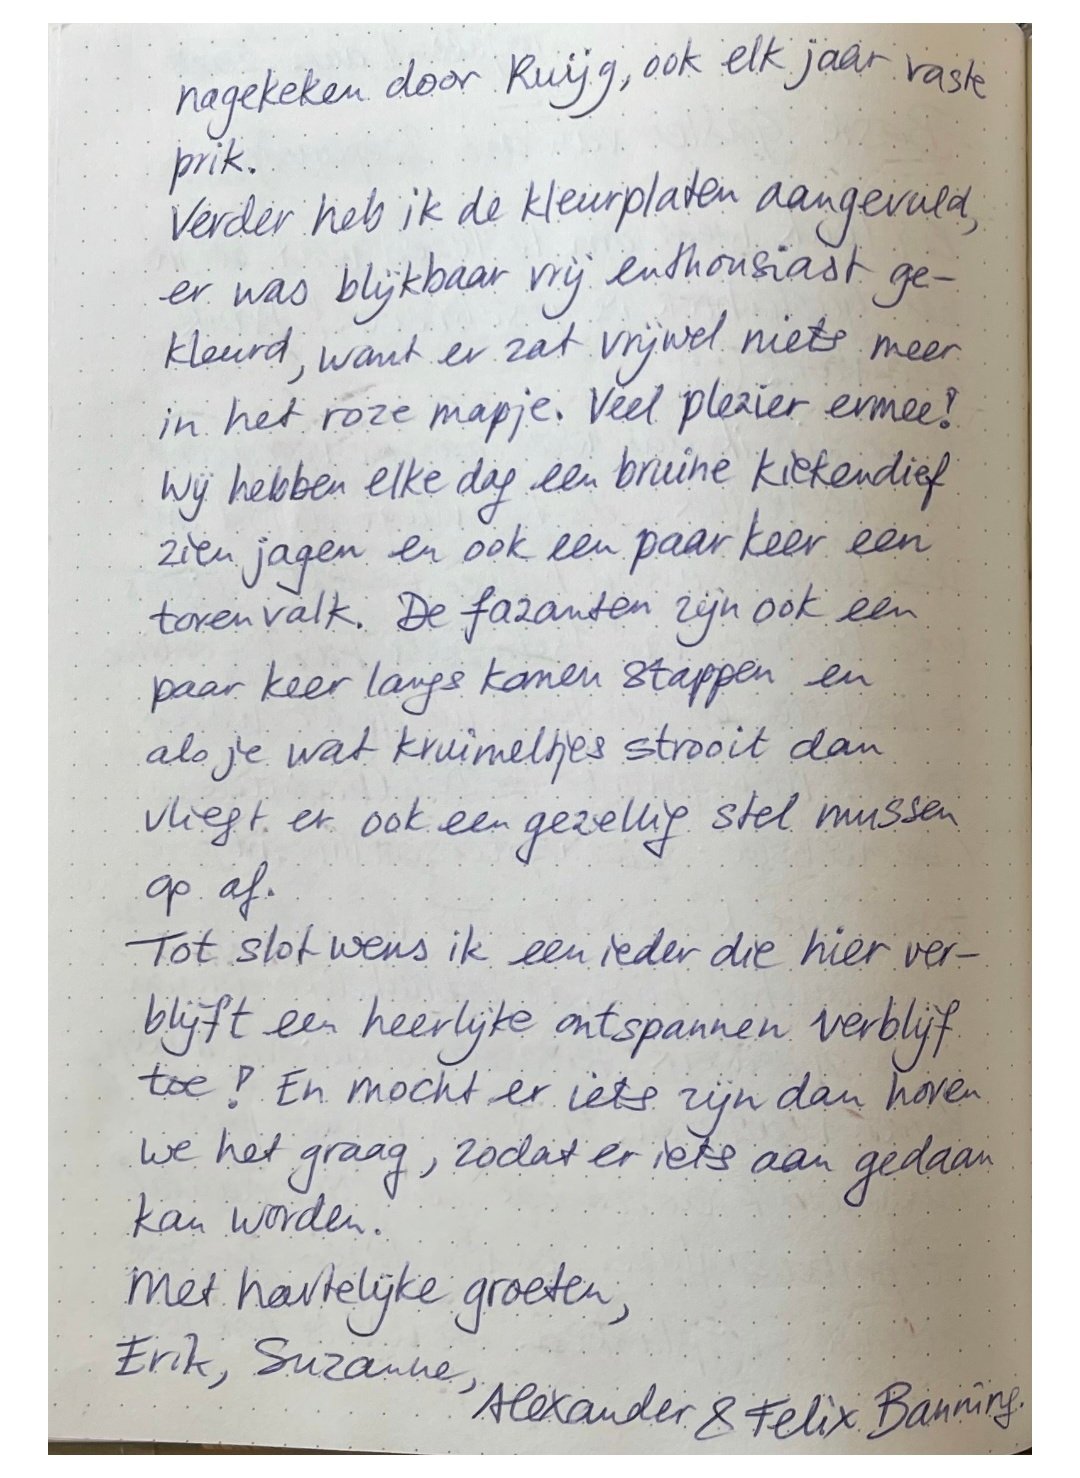 nagekeken door Ruijg, ook elk jaar vaste
prik.
Verder heb ik de kleurplaten aangevuld,
er was blijkbaar vrij enthousiast ge-
kleurd, want er zat vrijwel niets meer
in het roze mapje. Veel plezier ermee!
Wij hebben elke dag een bruine kiekendief
zien jagen en ook een paar keer een
torenvalk. De fazanten zijn ook een
paar keer langs komen stappen en
als je wat kruimeltjes strooit dan
vliegt er ook een gezellig stel mussen
op af.
Tot slot wens ik een ieder die hier ver-
blijft een heerlijke ontspannen verblijf
toe! En mocht er iets zijn dan horen
we het graag, zodat er iets aan gedaan
kan worden.
Met hartelijke groeten,
Erik, Suzanne,
Alexander & Felix Banning.